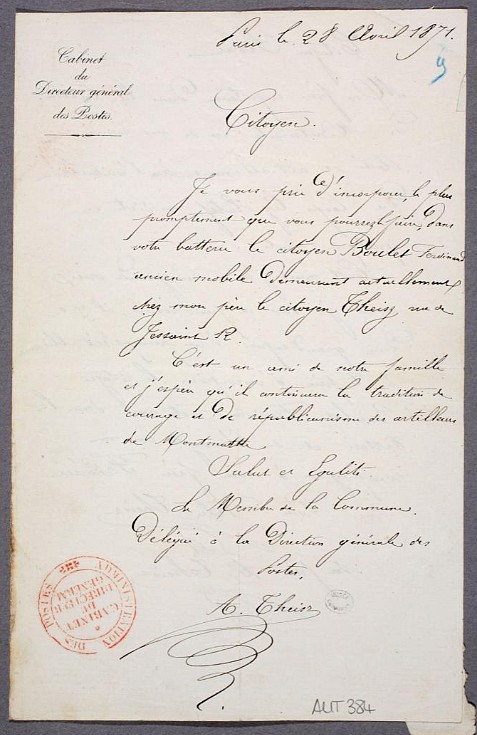 Paris le 28 Avril 1871.
9
Cabinet
du
Directeur général
des Postes.
Citoyen.
Je vous prie d'incorporer, le plus
promptement que vous pourrez faire, dans
votre batterie le citoyen Boulet Ferdinand
ancien mobile demeurant actuellement
chez mon père le citoyen Theisz rue de
Jessaint
C'est un ami de notre famille
et j'espère qu'il continuera la tradition de
courage et de républicanisme des artilleurs
de Montmartre
Salut et Egalité.
Le Membre de la Commune.
Délégué à la Direction générale des
Postes,
A. Theisz
ADMINISTRATION DES POSTES
CABINET
DU
DIRECTEUR
GENERAL
ALIT 384